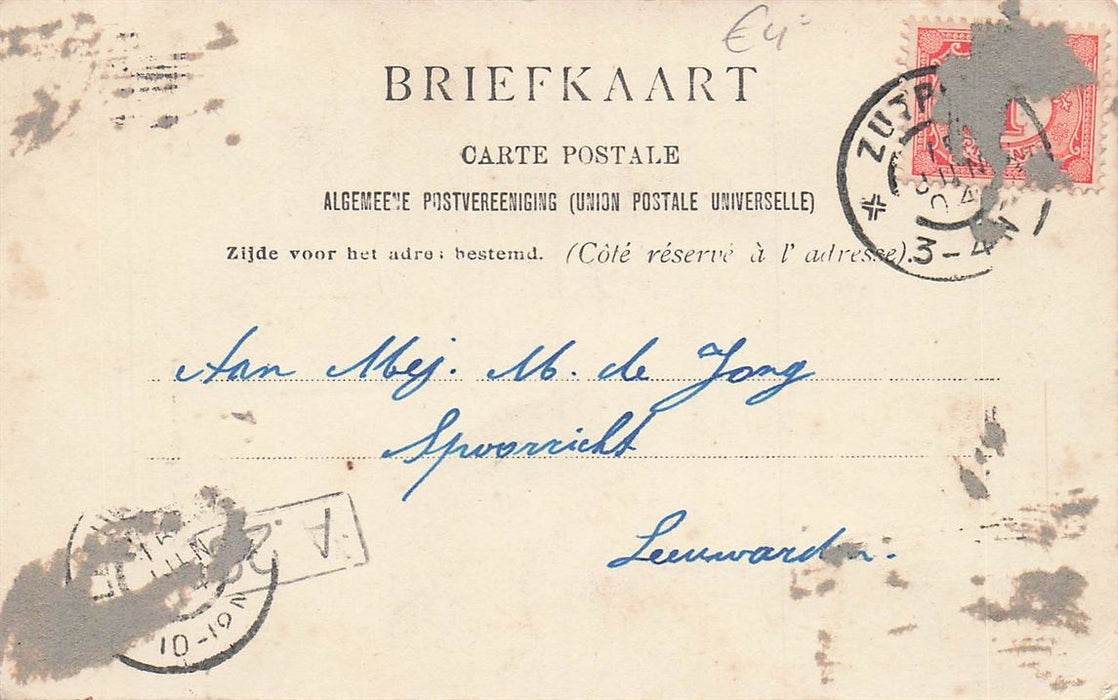 €4=
BRIEFKAART
CARTE POSTALE
ALGEMEENE POSTVEREENIGING (UNION POSTALE UNIVERSELLE)
Zijde voor het adres bestemd. (Côté réservé à l'adresse).
ZUTP
15
JUN
3-4N
Aan Mej. M. de Jong
Spoorzicht
Leeuwarden.
A
JUN
10-12N